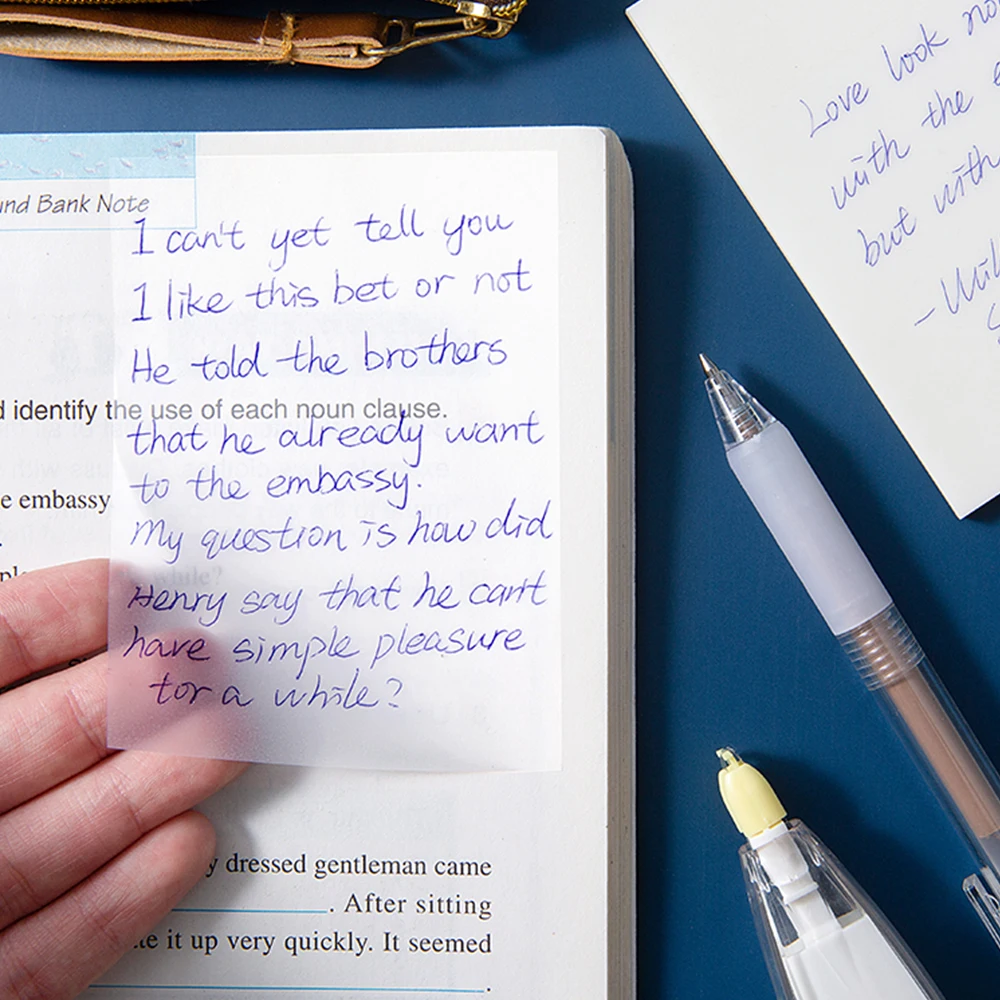 und Bank Note
I can't yet tell you
I like this bet or not
He told the brothers
d identify the use of each noun clause.
that he already want
e embassy
to the embassy.
My question is how did
while?
Henry say that he can't
have simple pleasure
tor a while?
y dressed gentleman came
. After sitting
te it up very quickly. It seemed
.
Love look no
with the e
but with